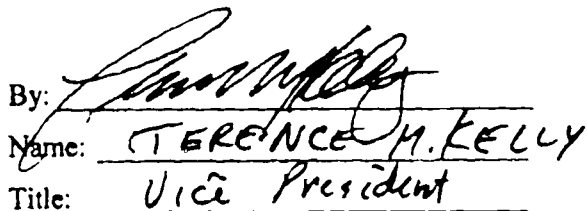 By:
Name: TERENCE M. KELLY
Title: Vice President